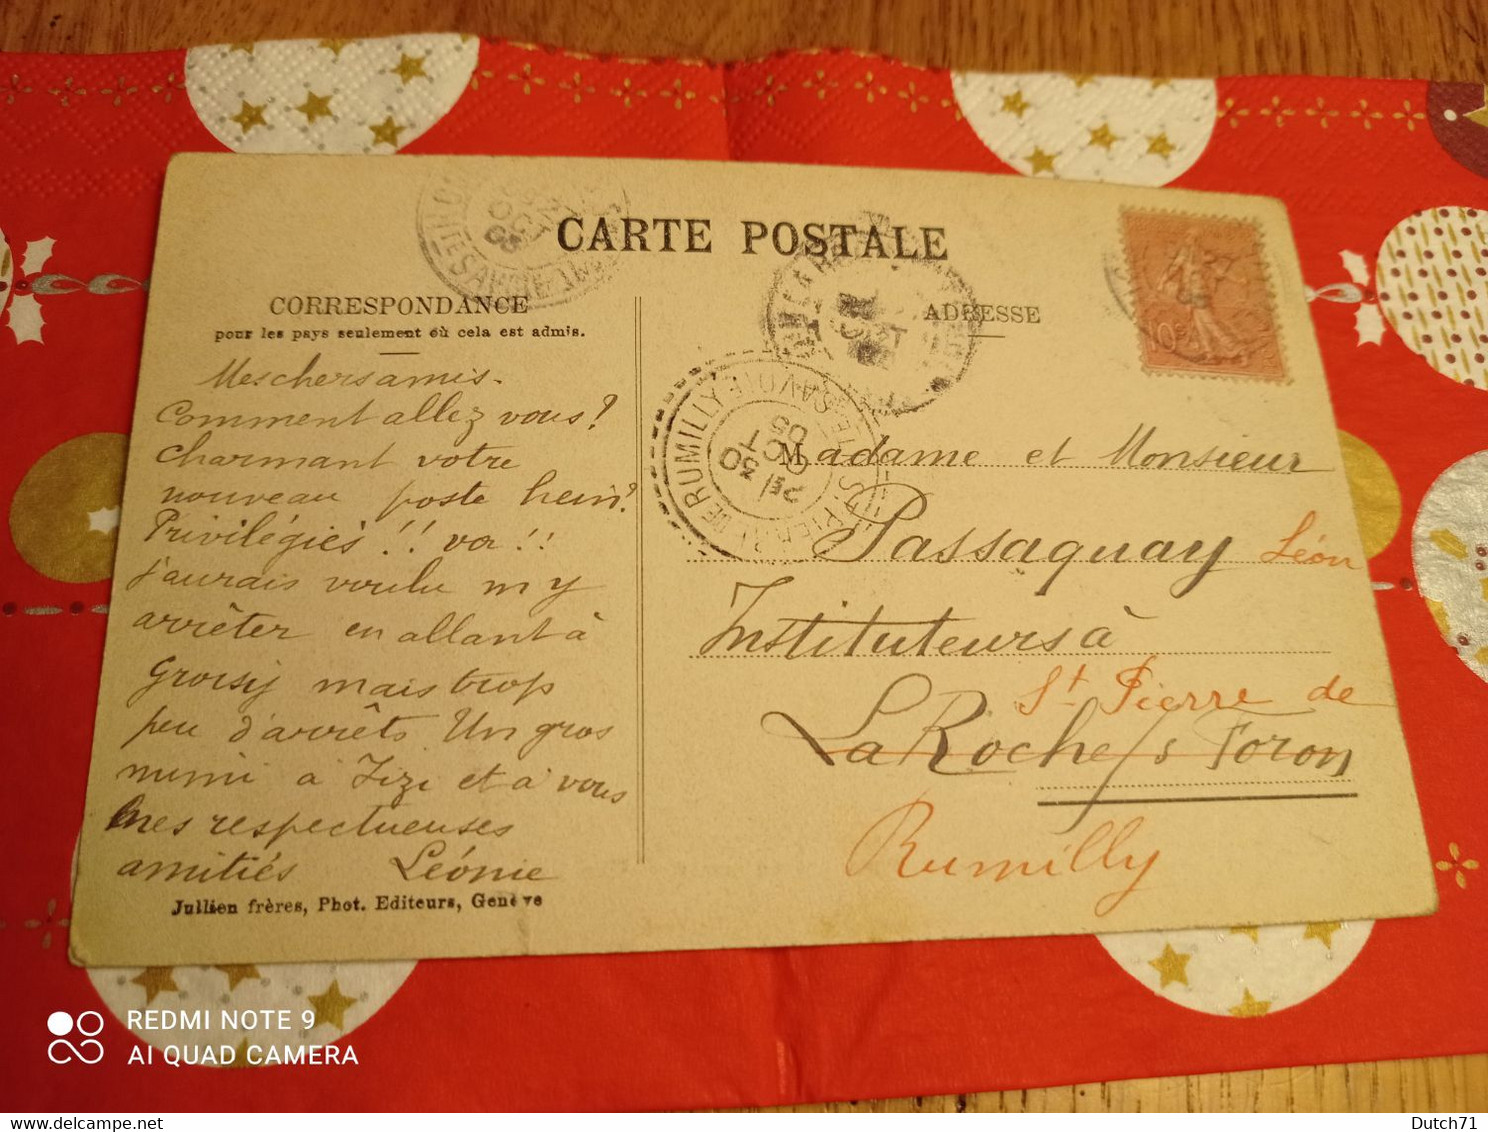 CARTE POSTALE
CORRESPONDANCE
pour les pays seulement où cela est admis.
Mes chers amis.
Comment allez vous?
Charmant votre
nouveau poste hein?
Privilégiés!! va!!
j'aurais voulu m'y
arrêter en allant à
Groisy mais trop
peu d'arrêts. Un gros
mimi à Zizi et à vous
mes respectueuses
amitiés Léonie
Jullien frères, Phot. Editeurs, Genève
ADRESSE
10c
ST PIERRE DE RUMILLY
HTE SAVOIE
30
OCT
05
OCT
05
HTE SAVOIE
Madame et Monsieur
Passaquay Léon
Instituteurs à
St Pierre de
La Roche s/ Foron
Rumilly
REDMI NOTE 9
AI QUAD CAMERA
Dutch71